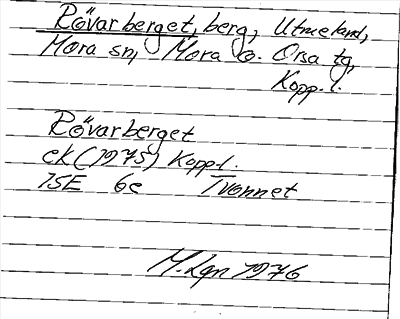 Rövarberget, berg, Utmeland,
Mora sn, Mora o. Orsa tg,
Kopp. l.
Rövarberget
ek (1975) Kopp.l.
15E 6e Tvennet
M.Lgn 1976